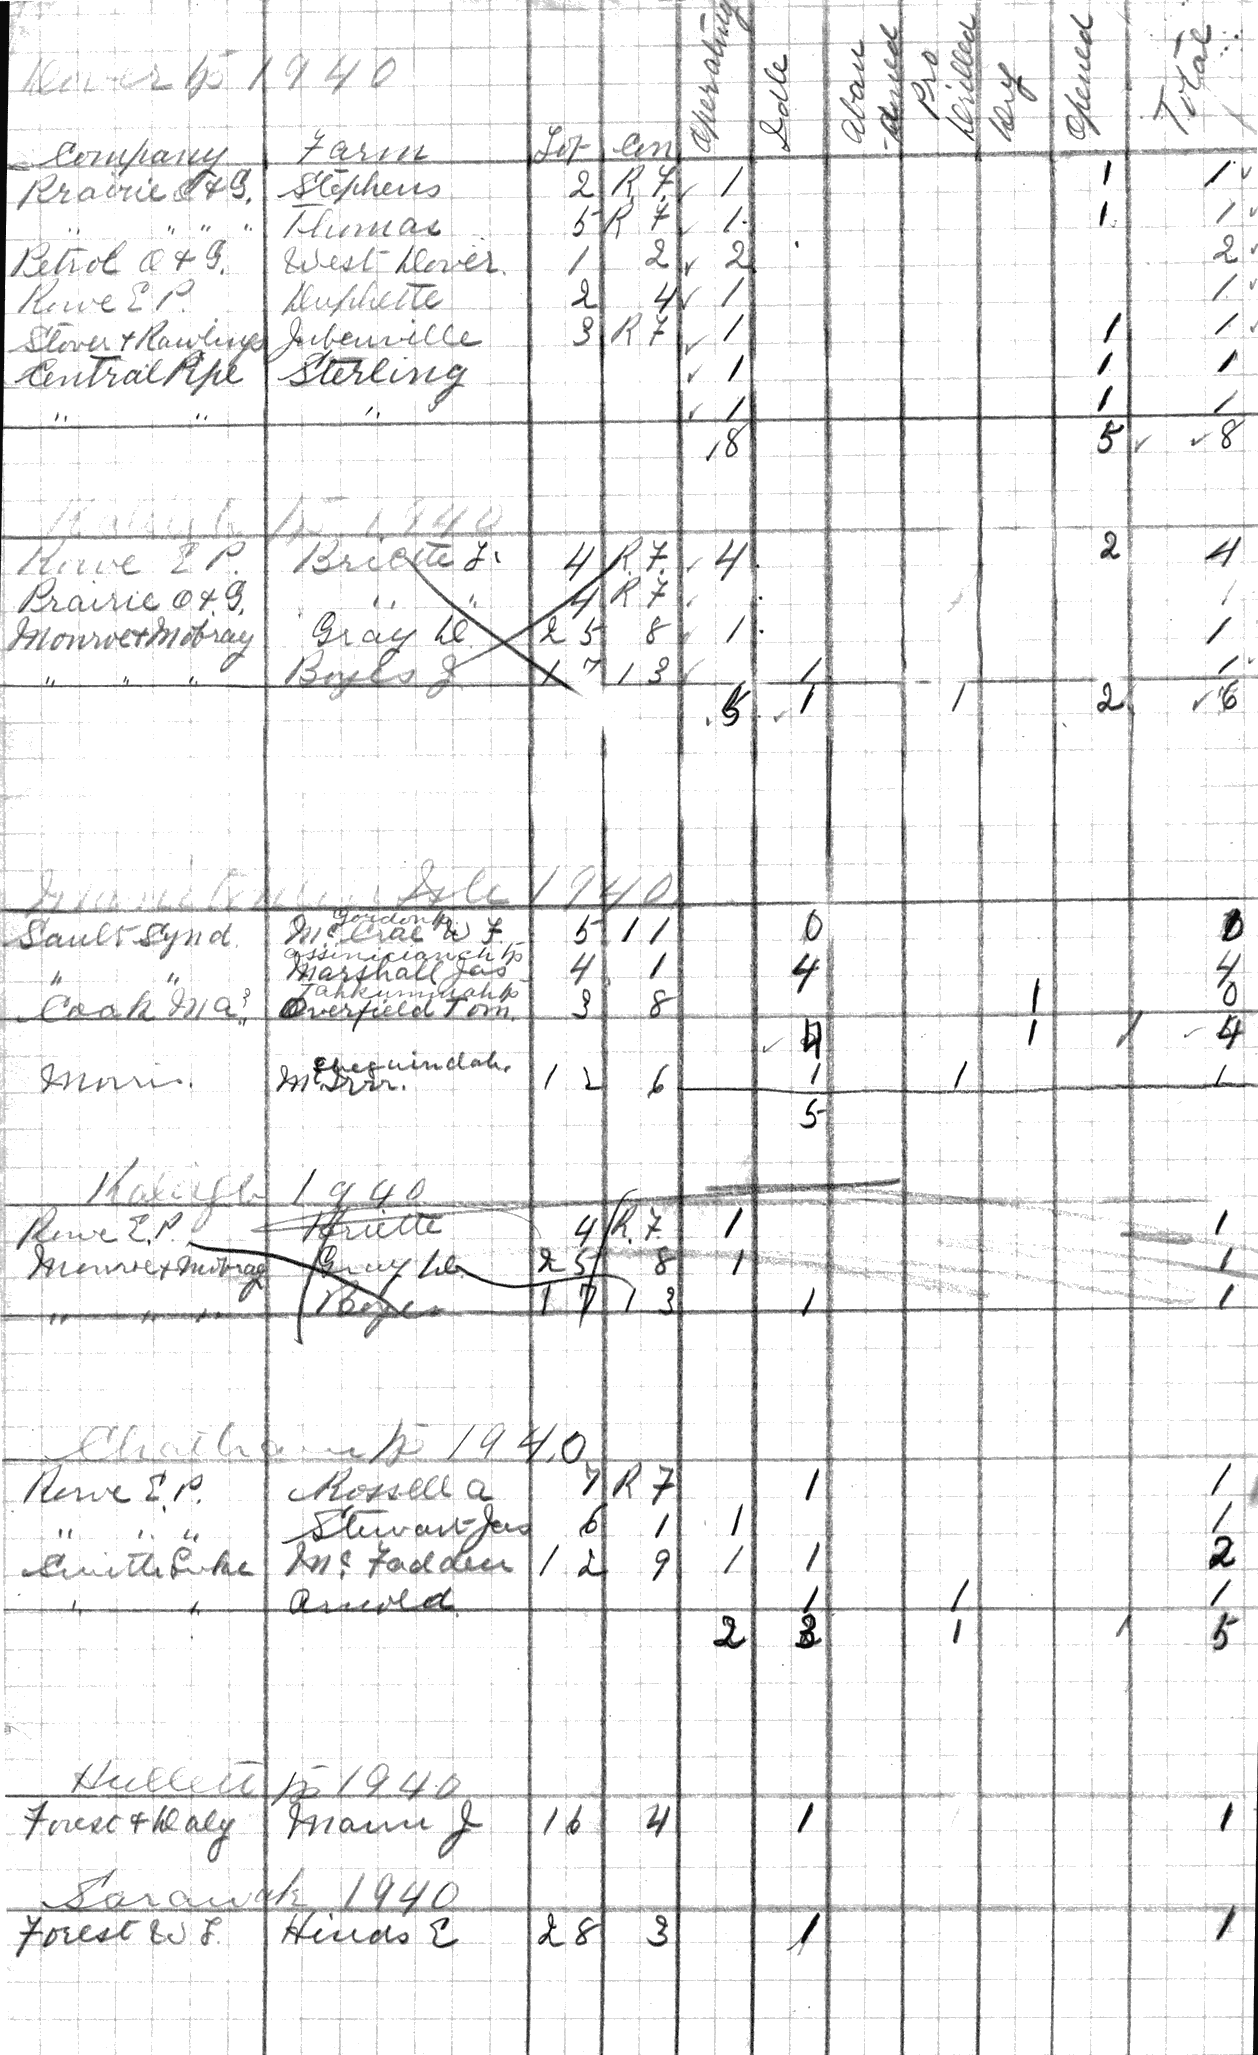 Dover Tp 1940
Company Farm Lot Con Operating Idle Aban-doned Pro Drilled Dry Opened Total
Prairie O & G. Stephens 2 R 7 ✓ 1 1 1 ✓
" " " " Thomas 5 R 7 ✓ 1 1 1 ✓
Petrol O & G. West Dover. 1 2 ✓ 2 2 ✓
Rowe E P. Duphette 2 4 ✓ 1 1 ✓
Stover & Rawlings Jubenville 3 R 7 ✓ 1 1 1 ✓
Central Pipe Sterling ✓ 1 1 1
" " " ✓ 1 1 1
✓ 8 5 ✓ ✓ 8
Raleigh Tp 1940
Rowe E P. Briette J. 4 R. 7. ✓ 4 2 4
Prairie O & G. " " 4 R 7 ✓ 1
Monroe & Mobray Gray D. 25 8 ✓ 1 1
" " " Boyes J 17 13 ✓ 1 1 ✓
✓ 5 ✓ 1 1 2 ✓ 6
Manitoulin Isle 1940
Gordon Tp
Sault Synd. McCrae W F. 5 11 0 0
Assinicianch Tp
" " Marshall Jas 4 1 4 4
Tahkummah Tp
Cook Ma? Overfield Tom. 3 8 1 0
✓ 4 1 / ✓ 4
Sheguindah.
Morri. 12 6 1 1 1
5
Raleigh 1940
Rowe E. P. Briette 4 R. 7. 1 1
Monroe & Mobray Gray D. 25 8 1 1
" " " Boyes 17 13 1 1
Chatham Tp 1940
Rowe E. P. Rossell A 7 R 7 1 1
" " " Stewart Jas 6 1 1 1
Smith Luke McFadden 12 9 1 1 2
" " Arnold. 1 1 1
2 3 1 / 5
Hullett Tp 1940
Forest & Daly Mann J 16 4 1 1
Sarawak 1940
Forest W F. Hinds E 28 3 1 1